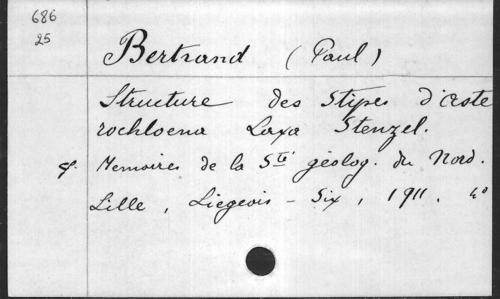 686
25
Bertrand (Paul)
Structure des Stipes d'aste
rochloena Laxa Stenzel.
cf. Memoires de la Sté géolog. du Nord.
Lille, Liégeois - Six, 1911. 4°